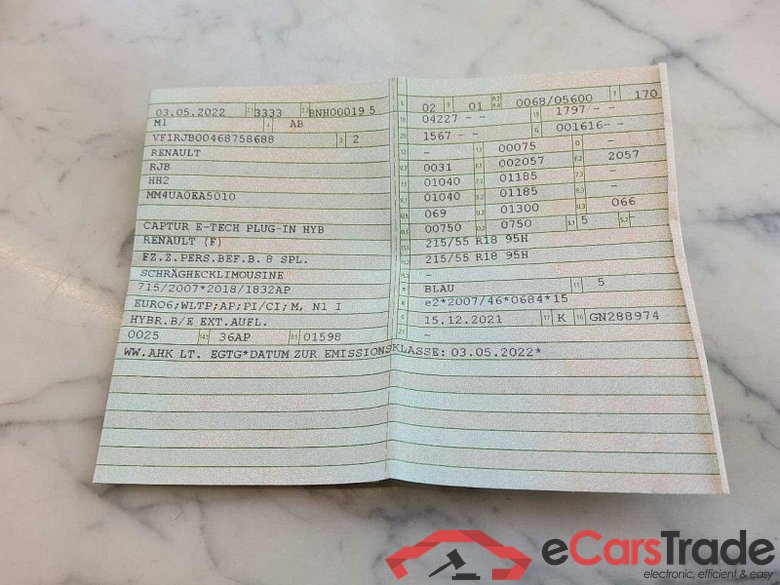 03.05.2022 3333 BNH00019 5
M1 AB
VF1RJB00468758688 3 2
RENAULT
RJB
HH2
MM4UA0EA5010
CAPTUR E-TECH PLUG-IN HYB
RENAULT (F)
FZ.Z.PERS.BEF.B. 8 SPL.
SCHRÄGHECKLIMOUSINE
715/2007*2018/1832AP
EURO6;WLTP;AP;PI/CI;M, N1 I
HYBR.B/E EXT.AUFL.
0025 36AP 01598
WW.AHK LT. EGTG*DATUM ZUR EMISSIONSKLASSE: 03.05.2022*
02 01 0068/05600 T 170
04227 - - 1797 - -
1567 - - G 001616- -
- 00075 Q -
0031 002057 2057
01040 01185 -
01040 01185 -
069 01300 066
00750 0750 5 -
215/55 R18 95H
215/55 R18 95H
-
BLAU 5
e2*2007/46*0684*15
15.12.2021 K GN288974
-
eCarsTrade
electronic, efficient & easy